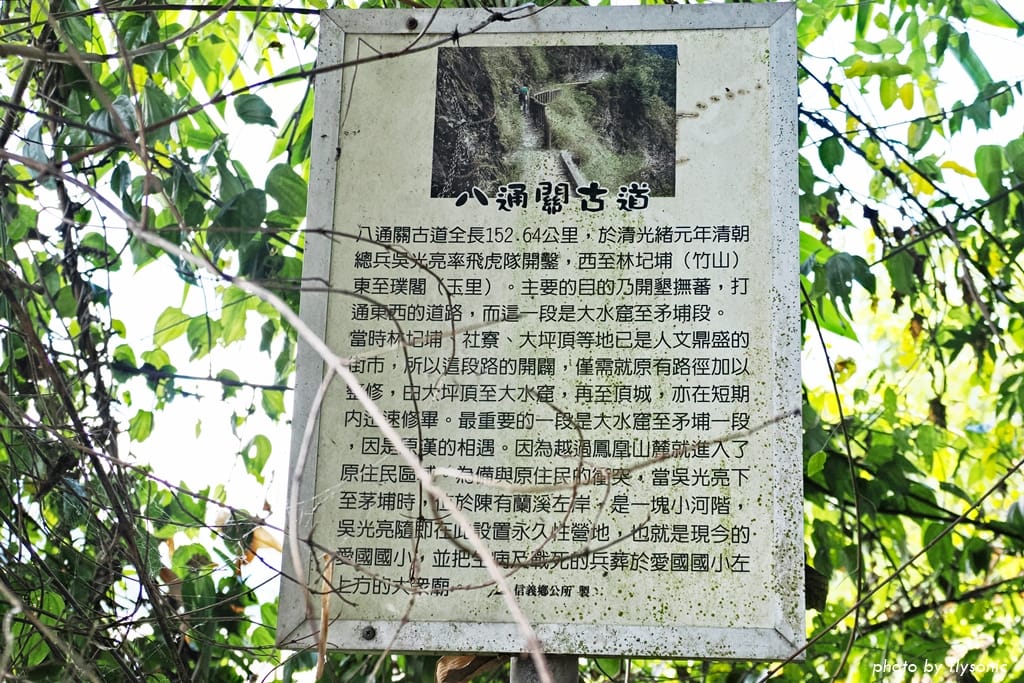 八通關古道
八通關古道全長152.64公里，於清光緒元年清朝
總兵吳光亮率飛虎隊開鑿，西至林圮埔（竹山）
東至璞閣（玉里）。主要的目的乃開墾撫蕃，打
通東西的道路，而這一段是大水窟至茅埔段。
當時林圮埔、社寮、大坪頂等地已是人文鼎盛的
街市，所以這段路的開闢，僅需就原有路徑加以
整修，由大坪頂至大水窟，再至頂城，亦在短期
內迅速修畢。最重要的一段是大水窟至茅埔一段
，因是原漢的相遇。因為越過鳳凰山麓就進入了
原住民區域，為備與原住民的衝突，當吳光亮下
至茅埔時，在於陳有蘭溪左岸，是一塊小河階，
吳光亮隨即在此設置永久性營地，也就是現今的
愛國國小，並把生病及戰死的兵葬於愛國國小左
上方的大眾廟
信義鄉公所 製
photo by tlysonic